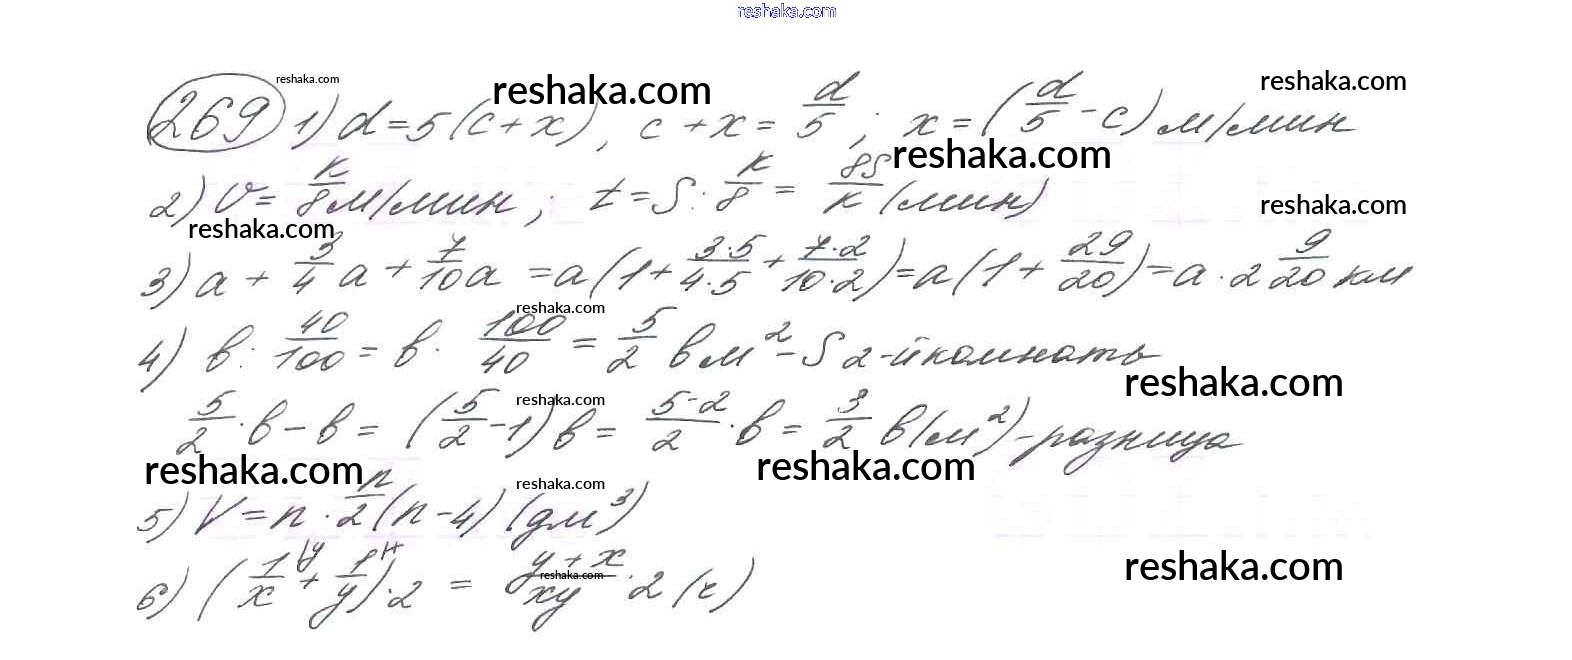 reshaka.com
reshaka.com reshaka.com reshaka.com
269 1) d = 5(c + x), c + x = d/5; x = (d/5 - c) м/мин
reshaka.com
2) v = k/8 м/мин; t = S : k/8 = 8S/k (мин)
reshaka.com reshaka.com
3) a + 3/4 a + 7/10 a = a(1 + 3·5/4·5 + 7·2/10·2) = a(1 + 29/20) = a · 2 9/20 км
reshaka.com
4) в : 40/100 = в · 100/40 = 5/2 в м² - S 2-й комнаты
reshaka.com reshaka.com
5/2 · в - в = (5/2 - 1) в = 5-2/2 · в = 3/2 в (м²) - разница
reshaka.com reshaka.com reshaka.com
5) V = n · n/2 (n - 4) (дм³)
reshaka.com
6) (1/x \y + 1/y \x) · 2 = y + x/xy · 2 (г)
reshaka.com